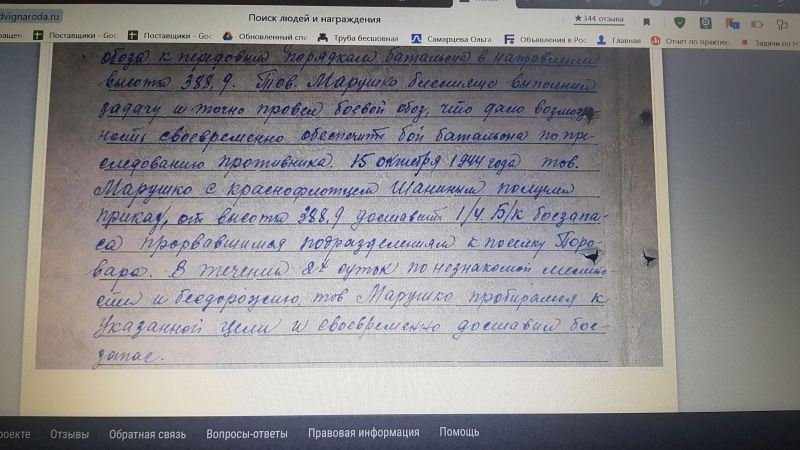 dvignaroda.ru
Поиск людей и награждения
★344 отзыва
Поставщики - Goc
Поставщики - Goc
Обновленный спи
Труба бесшовная
Самарцева Ольга
Объявления в Рос
Главная
Отчет по практик
Задачи по Н
обоза к передовым порядкам батальона в направлении
высоты 388,9. Тов. Марушко блестяще выполнил
задачу и точно провел боевой обоз, что дало возмож
ность своевременно обеспечить бой батальона по пре-
следованию противника. 15 октября 1944 года тов.
Марушко с краснофлотцем Шаниным получил
приказ, от высоты 388,9 доставить 1/4 Б/К боезапа-
са прорвавшимся подразделениям к поселку Поро-
вара. В течении 2х суток по незнакомой местно
сти и бездорожию, тов Марушко пробирался к
указанной цели и своевременно доставил бое-
запас.
роекте Отзывы Обратная связь Вопросы-ответы Правовая информация Помощь